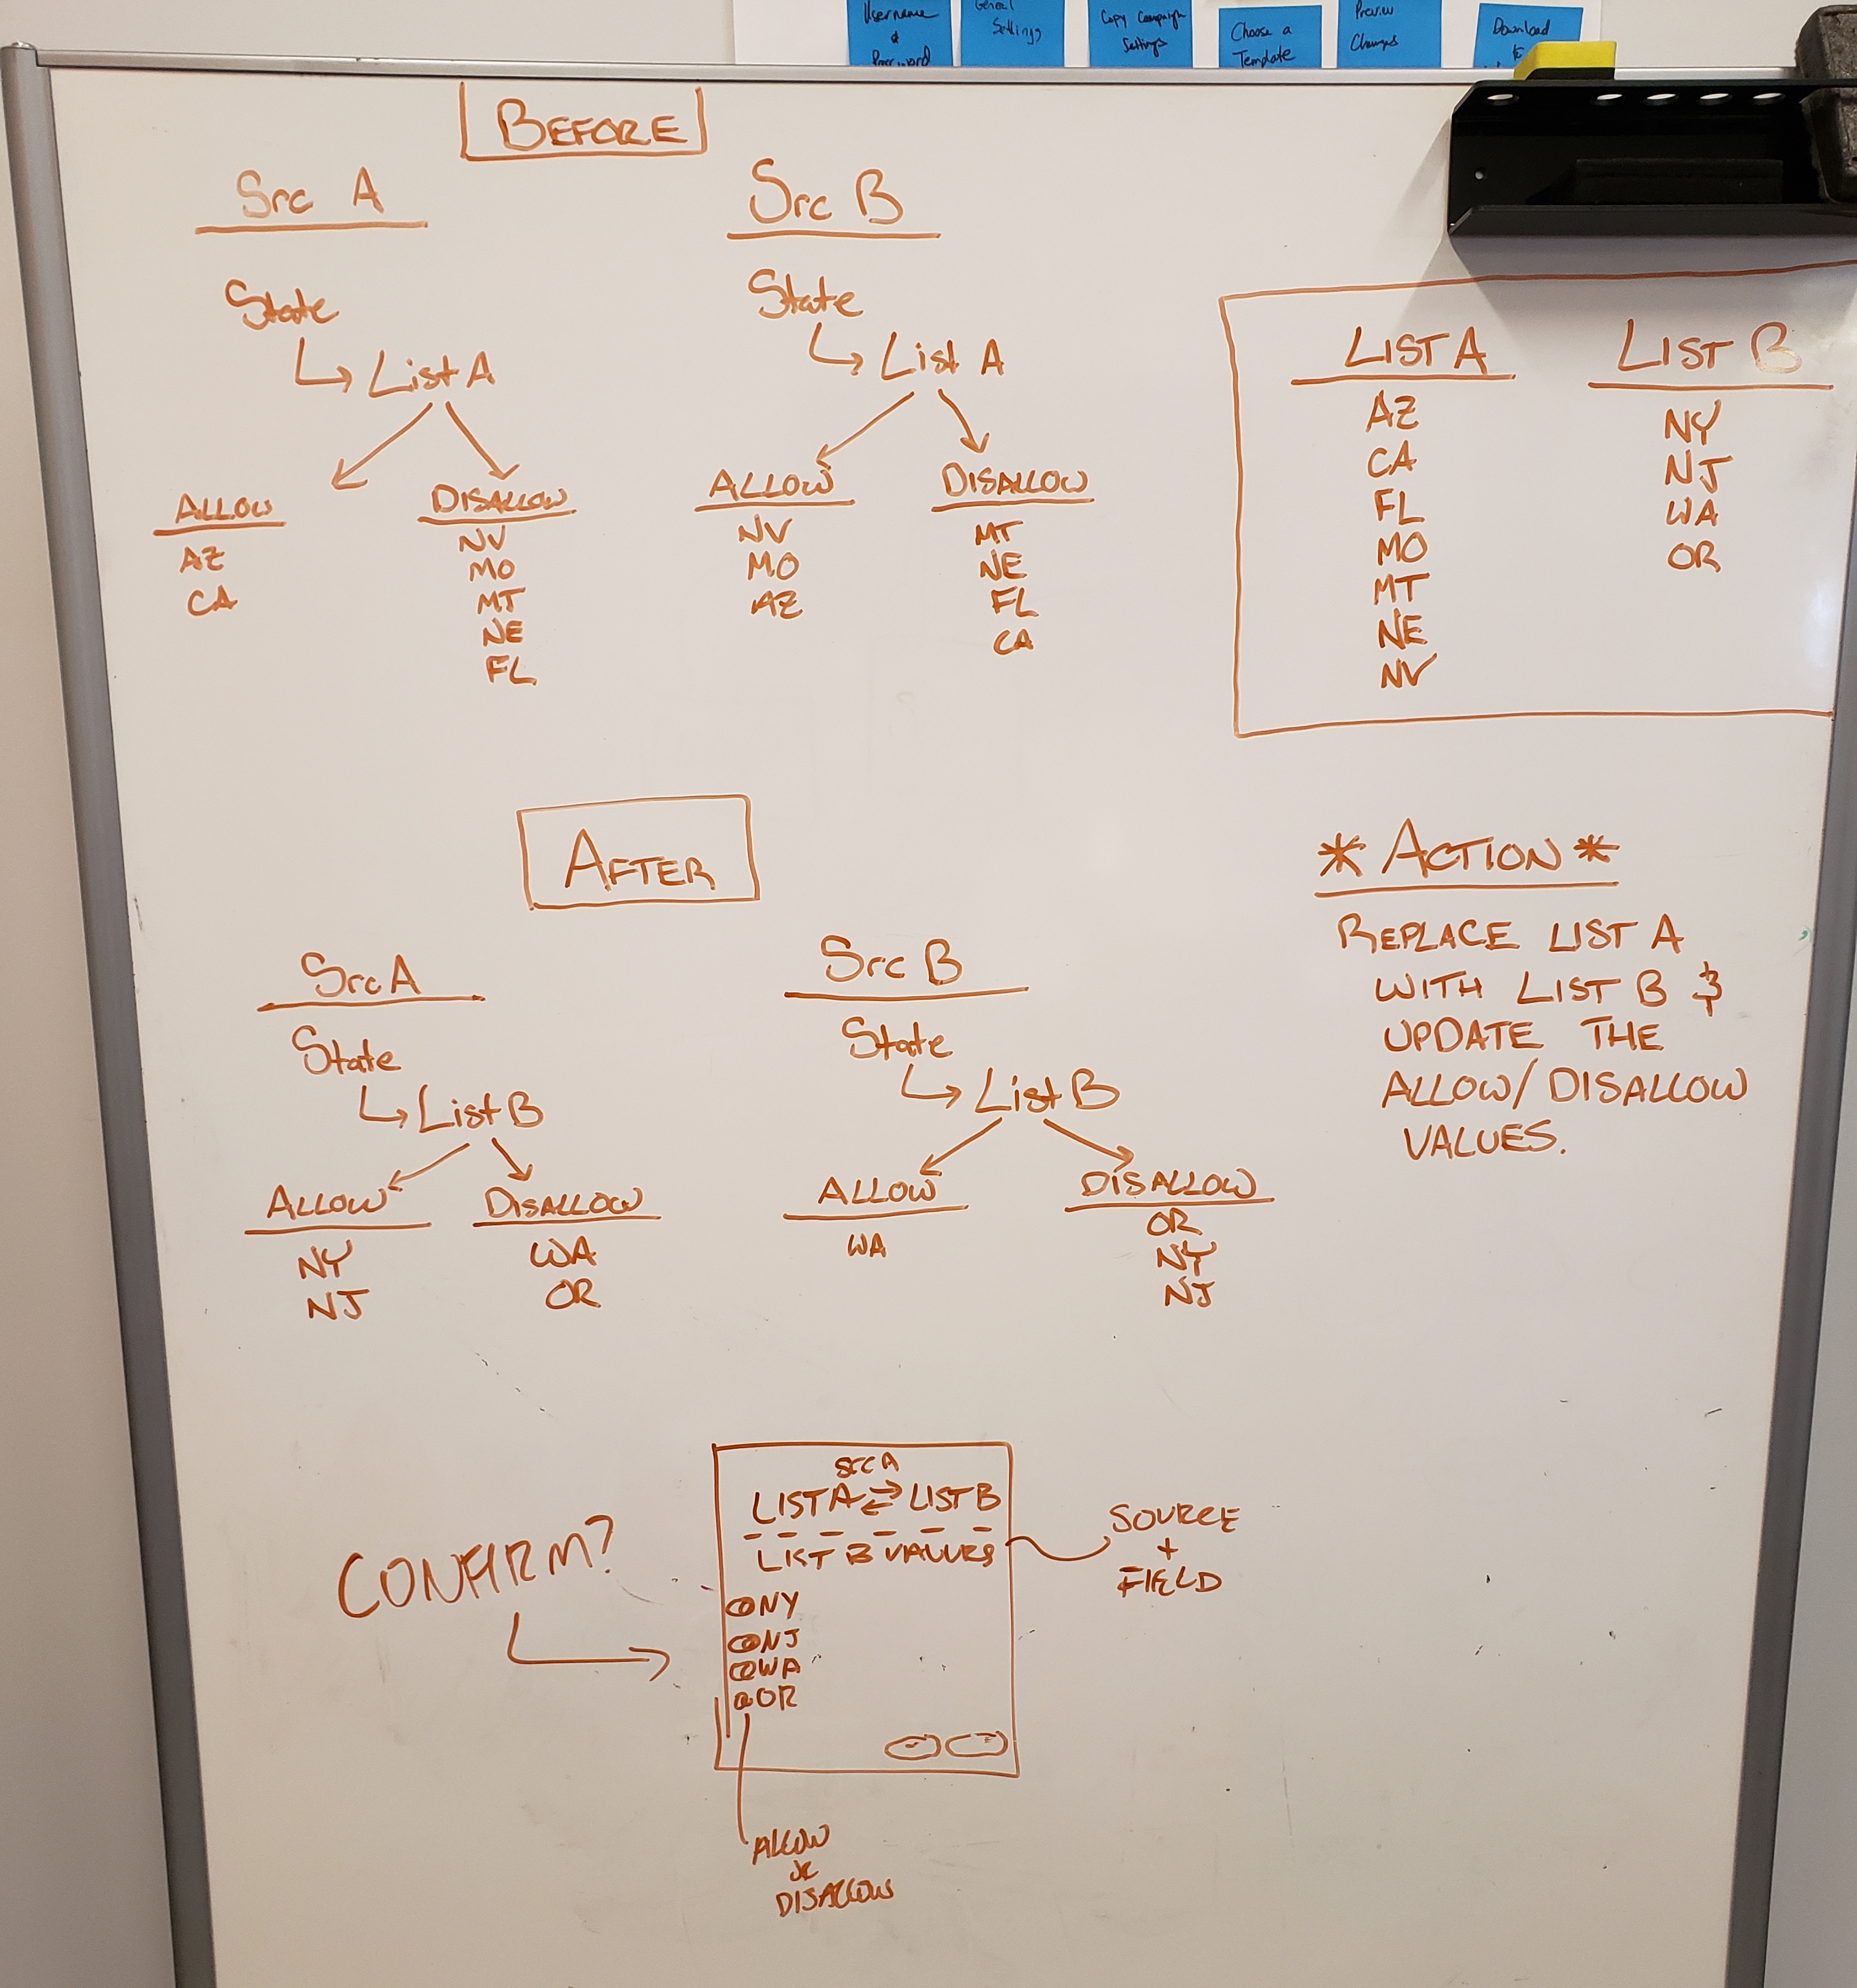 Username
&
Password
General
Settings
Copy Campaign
Settings
Choose a
Template
Preview
Changes
Download
BEFORE
Src A
State
List A
ALLOW
AZ
CA
DISALLOW
NV
MO
MT
NE
FL
Src B
State
List A
ALLOW
NV
MO
AZ
DISALLOW
MT
NE
FL
CA
LIST A
AZ
CA
FL
MO
MT
NE
NV
LIST B
NY
NJ
WA
OR
AFTER
Src A
State
List B
ALLOW
NY
NJ
DISALLOW
WA
OR
Src B
State
List B
ALLOW
WA
DISALLOW
OR
NY
NJ
* ACTION *
REPLACE LIST A
WITH LIST B &
UPDATE THE
ALLOW/DISALLOW
VALUES.
CONFIRM?
SRC A
LIST A ⇄ LIST B
LIST B VALUES
NY
NJ
WA
OR
SOURCE
+
FIELD
ALLOW
or
DISALLOW